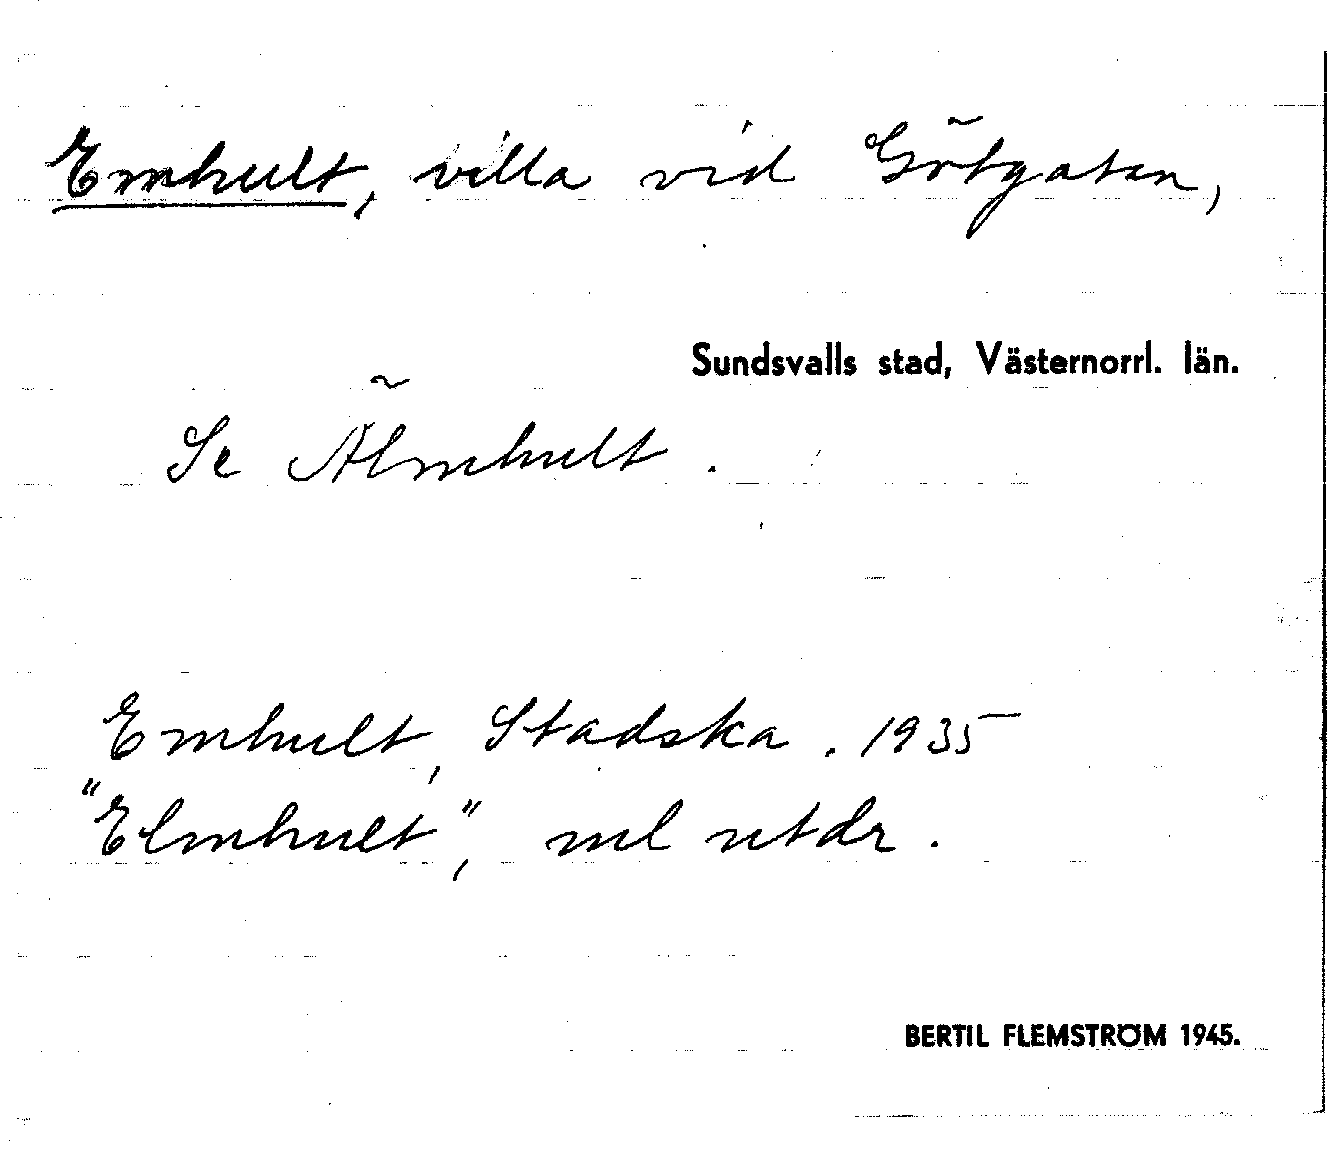 Emhult, villa vid Götgatan,
Sundsvalls stad, Västernorrl. län.
Se Älmhult.
Emhult, Stadska. 1935
"Elmhult", ml utdr.
BERTIL FLEMSTRÖM 1945.